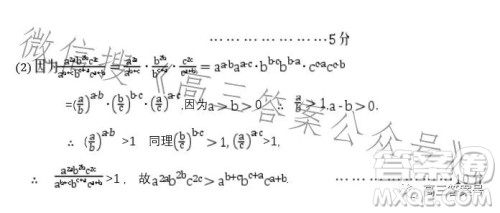 ……………………5分
(2) 因为 a^{2a}b^{2b}c^{2c}/(a^{b+c}b^{c+a}c^{a+b}) = a^{2a}/a^{b+c} · b^{2b}/b^{c+a} · c^{2c}/c^{a+b} = a^{a-b}a^{a-c} · b^{b-c}b^{b-a} · c^{c-a}c^{c-b}
=(a/b)^{a-b} · (b/c)^{b-c} · (a/c)^{a-c},因为a>b>0 ∴ a/b>1,a-b>0.
∴ (a/b)^{a-b} >1 同理(b/c)^{b-c} >1, (a/c)^{a-c}>1,
∴ a^{2a}b^{2b}c^{2c}/(a^{b+c}b^{c+a}c^{a+b}) >1 , 故a^{2a}b^{2b}c^{2c}>a^{b+c}b^{c+a}c^{a+b}. ……………………
微信搜《高三答案公众号》
高三答案公众号